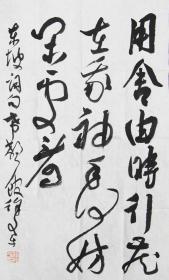 用舍由時行藏
在我袖手何妨
閑處看
東坡詞句